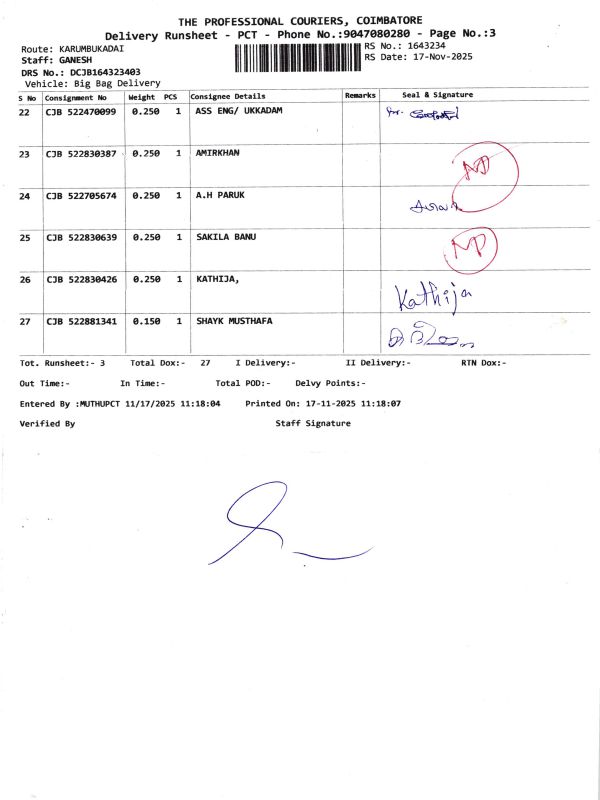 THE PROFESSIONAL COURIERS, COIMBATORE
Delivery Runsheet - PCT - Phone No.:9047080280 - Page No.:3
Route: KARUMBUKADAI
RS No.: 1643234
Staff: GANESH
RS Date: 17-Nov-2025
DRS No.: DCJB164323403
Vehicle: Big Bag Delivery
S No Consignment No Weight PCS Consignee Details Remarks Seal & Signature
22 CJB 522470099 0.250 1 ASS ENG/ UKKADAM
23 CJB 522830387 0.250 1 AMIRKHAN
24 CJB 522705674 0.250 1 A.H PARUK
25 CJB 522830639 0.250 1 SAKILA BANU
26 CJB 522830426 0.250 1 KATHIJA, Kathija
27 CJB 522881341 0.150 1 SHAYK MUSTHAFA
Tot. Runsheet:- 3 Total Dox:- 27 I Delivery:- II Delivery:- RTN Dox:-
Out Time:- In Time:- Total POD:- Delvy Points:-
Entered By :MUTHUPCT 11/17/2025 11:18:04 Printed On: 17-11-2025 11:18:07
Verified By Staff Signature